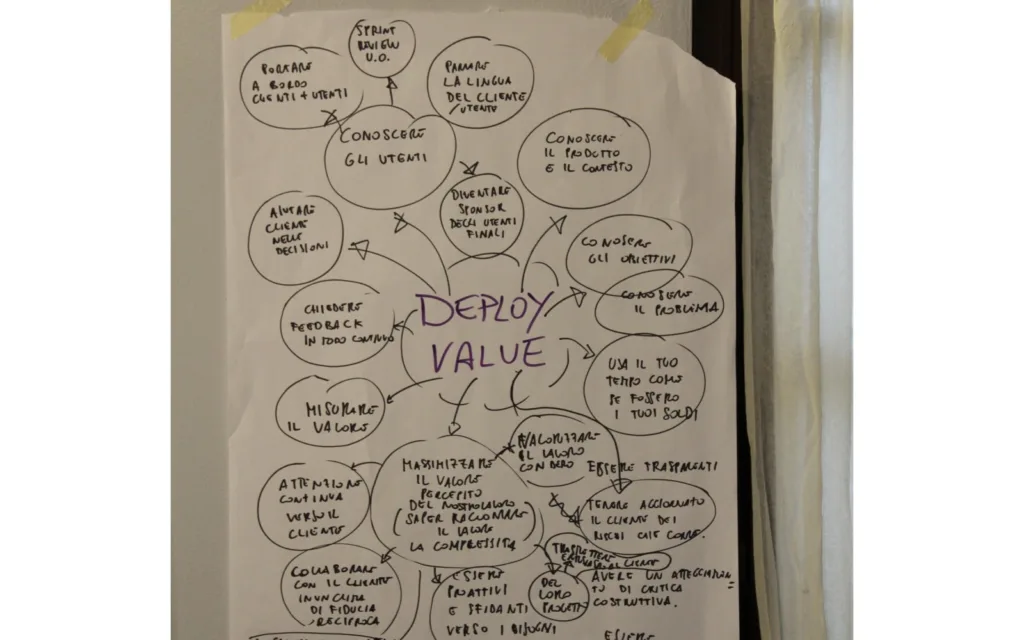 SPRINT
REVIEW
U.O.
PORTARE
A BORDO
CLIENTI + UTENTI
PARLARE
LA LINGUA
DEL CLIENTE
/UTENTE
CONOSCERE
GLI UTENTI
CONOSCERE
IL PRODOTTO
E IL CONTESTO
DIVENTARE
SPONSOR
DEGLI UTENTI
FINALI
AIUTARE
CLIENTE
NELLE
DECISIONI
CONOSCERE
GLI OBIETTIVI
CONOSCERE
IL PROBLEMA
CHIEDERE
FEEDBACK
IN MODO CONTINUO
DEPLOY
VALUE
USA IL TUO
TEMPO COME
SE FOSSERO
I TUOI SOLDI
MISURARE
IL VALORE
VALORIZZARE
IL LAVORO
CON LORO
ESSERE TRASPARENTI
MASSIMIZZARE
IL VALORE
PERCEPITO
DEL NOSTRO LAVORO
(SAPER RACCONTARE
IL VALORE
LA COMPLESSITÀ
ATTENZIONE
CONTINUA
VERSO IL
CLIENTE
TENERE AGGIORNATO
IL CLIENTE DEI
RISCHI CHE CORRE.
TRASMETTERE
AL CLIENTE
DEL
LORO
PROGETTO
AVERE UN ATTEGGIAMEN
TO DI CRITICA
COSTRUTTIVA.
COLLABORARE
CON IL CLIENTE
IN UN CLIMA
DI FIDUCIA
RECIPROCA
ESSERE
PROATTIVI
E SFIDANTI
VERSO I BISOGNI
ESSERE